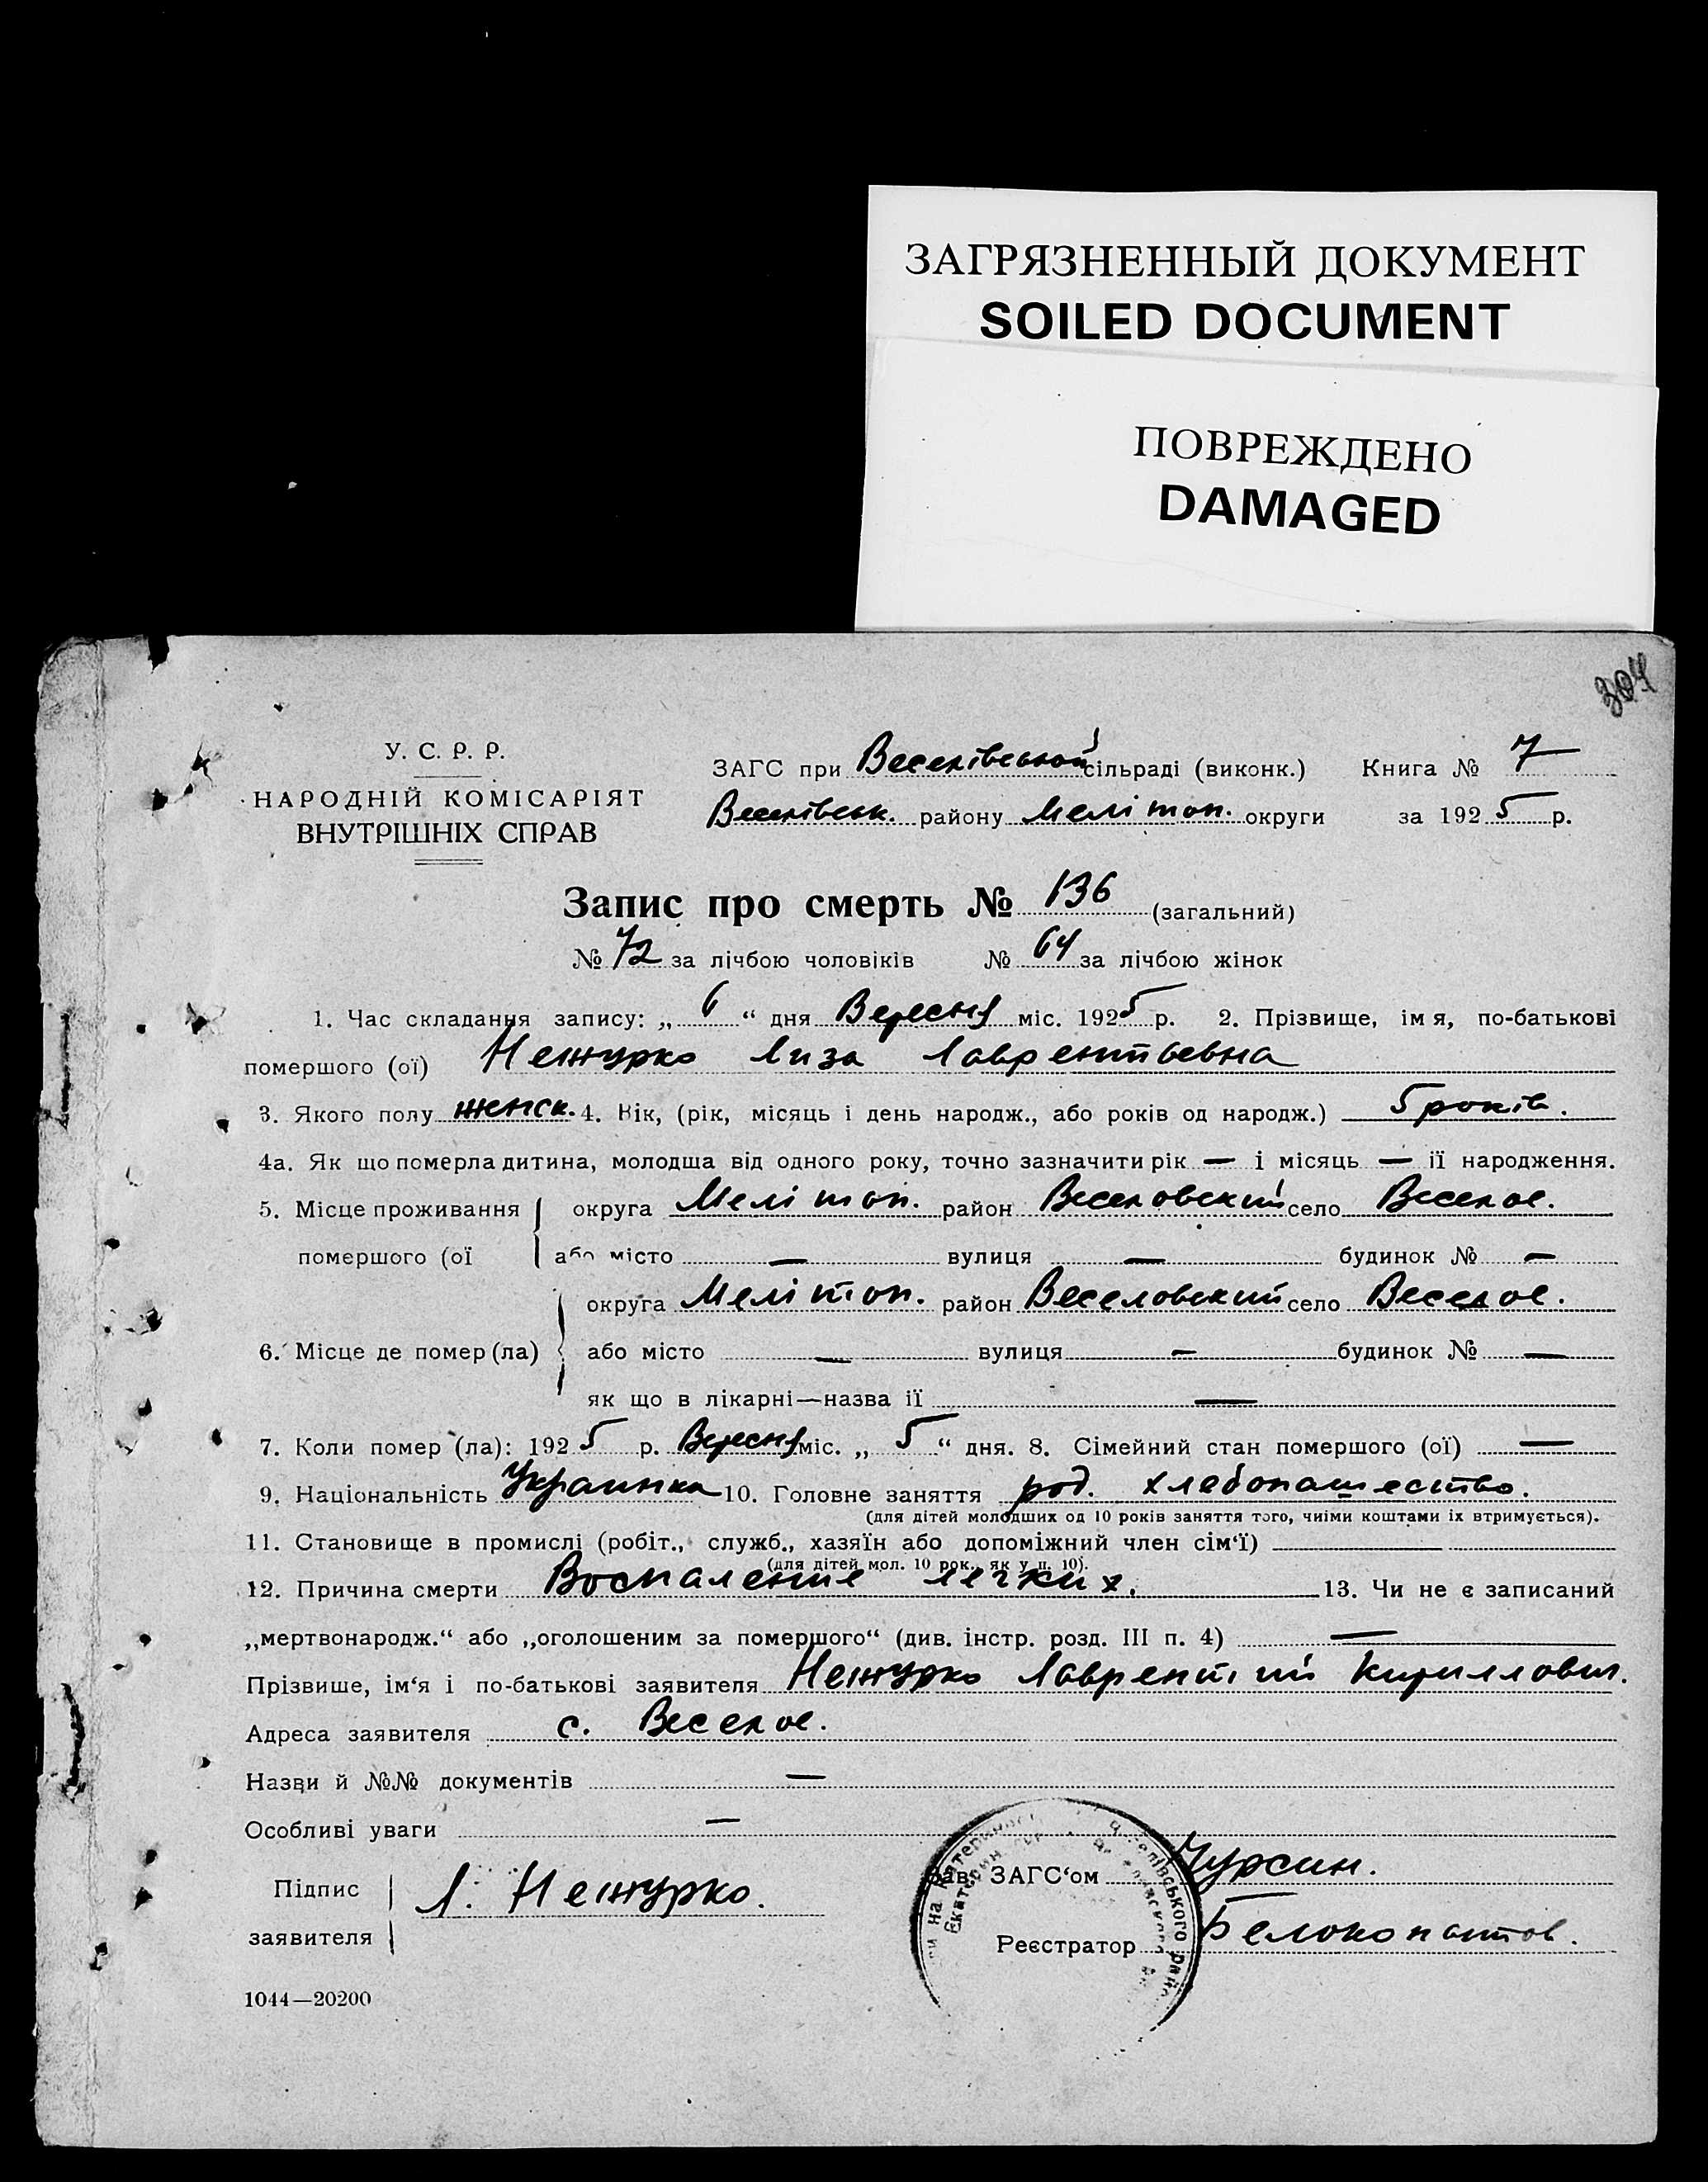 ЗАГРЯЗНЕННЫЙ ДОКУМЕНТ
SOILED DOCUMENT
ПОВРЕЖДЕНО
DAMAGED
304
У. С. Р. Р.
НАРОДНІЙ КОМІСАРІЯТ
ВНУТРІШНІХ СПРАВ
ЗАГС при Веселівській сільраді (виконк.) Книга № 7
Веселівськ. району Мелітоп. округи за 1925 р.
Запис про смерть № 136 (загальний)
№ 72 за лічбою чоловіків № 64 за лічбою жінок
1. Час складання запису: „ 6 “ дня Вересня міс. 1925 р. 2. Прізвище, імя, по-батькові
помершого (ої) Нежурко Лиза Лаврентьевна
3. Якого полу женск. 4. Вік, (рік, місяць і день народж., або років од народж.) 5 років.
4а. Як що померла дитина, молодша від одного року, точно зазначити рік — і місяць — її народження.
5. Місце проживання округа Мелітоп. район Веселовский село Веселое.
помершого (ої або місто — вулиця — будинок № —
округа Меліто­п. район Веселовский село Веселое.
6. Місце де помер (ла) або місто — вулиця — будинок № —
як що в лікарні—назва її —
7. Коли помер (ла): 1925 р. Вересня міс. „ 5 “ дня. 8. Сімейний стан помершого (ої) —
9. Національність Украинка 10. Головне заняття род. хлебопашество.
(для дітей молодших од 10 років заняття того, чиїми коштами їх втримується).
11. Становище в промислі (робіт., служб., хазяїн або допоміжний член сім‘ї)
(для дітей мол. 10 рок., як у п. 10).
12. Причина смерти Воспаление легких. 13. Чи не є записаний
„мертвонародж.“ або „оголошеним за помершого“ (див. інстр. розд. III п. 4) —
Прізвише, ім‘я і по-батькові заявителя Нежурко Лаврентий Кириллович.
Адреса заявителя с. Веселое.
Назви й №№ документів —
Особливі уваги —
Підпис
заявителя Л. Нежурко.
Зав. ЗАГС‘ом Чурсин.
Реєстратор Белокопытов.
1044—20200